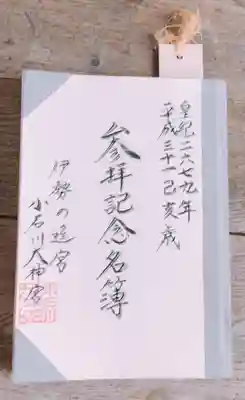 皇紀二六七九年
平成三十一己亥歳
参拝記念名簿
伊勢の遥宮
小石川大神宮